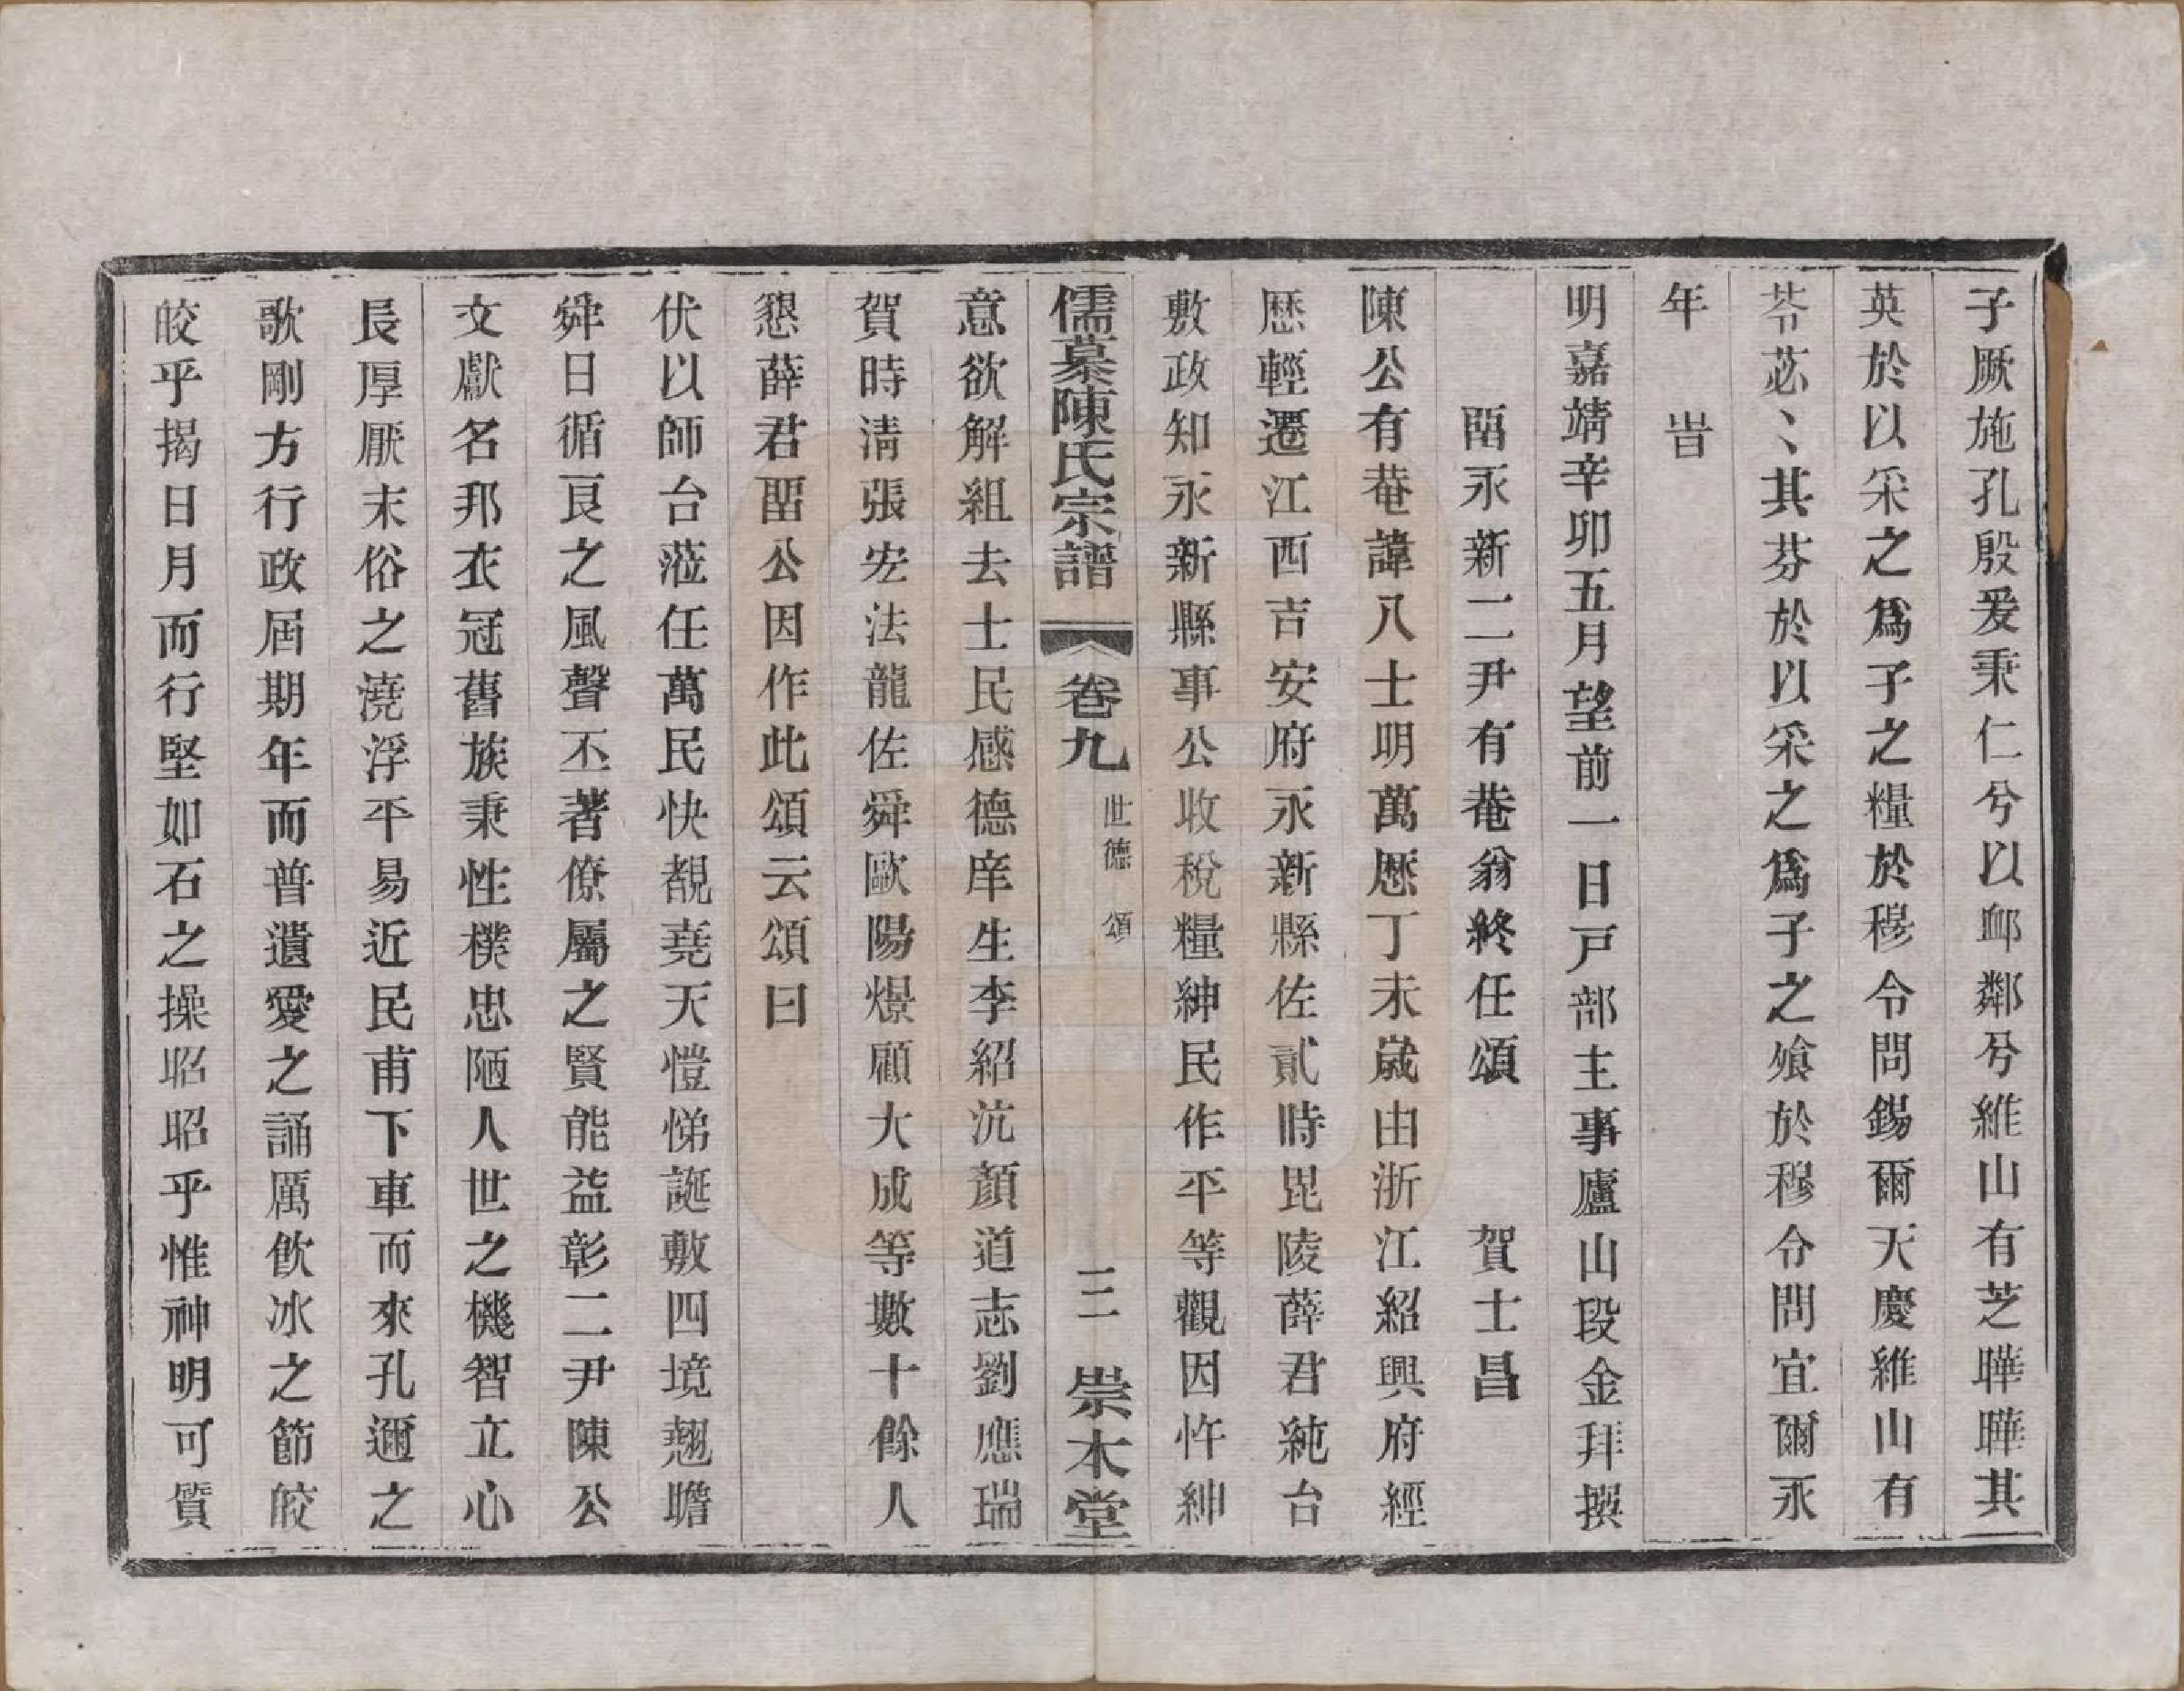 子厥施孔殷爰秉仁兮以䘏鄰兮維山有芝曄曄其
英於以采之爲子之糧於穆令問錫爾天慶維山有
苓苾〻其芬於以采之爲子之飧於穆令問宜爾永
年　旹
明嘉靖辛卯五月望前一日戸部主事廬山段金拜撰
畱永新二尹有菴翁終任頌　賀士昌
陳公有菴諱八士明萬歷丁未歲由浙江紹興府經
歷輕遷江西吉安府永新縣佐貳時毘陵薛君純台
敷政知永新縣事公收稅糧紳民作平等觀因忤紳
儒慕陳氏宗譜　卷九　世德　頌　三　崇本堂
意欲解組去士民感德庠生李紹沆顏道志劉應瑞
賀時淸張宏法龍佐舜歐陽爆顧大成等數十餘人
懇薛君畱公因作此頌云頌曰
伏以師台蒞任萬民快覩堯天愷悌誕敷四境翹瞻
舜日循良之風聲丕著僚屬之賢能益彰二尹陳公
文獻名邦衣冠舊族秉性樸忠陋人世之機智立心
長厚厭末俗之澆浮平易近民甫下車而來孔邇之
歌剛方行政屆期年而普遺愛之誦厲飲冰之節皎
皎乎揭日月而行堅如石之操昭昭乎惟神明可質